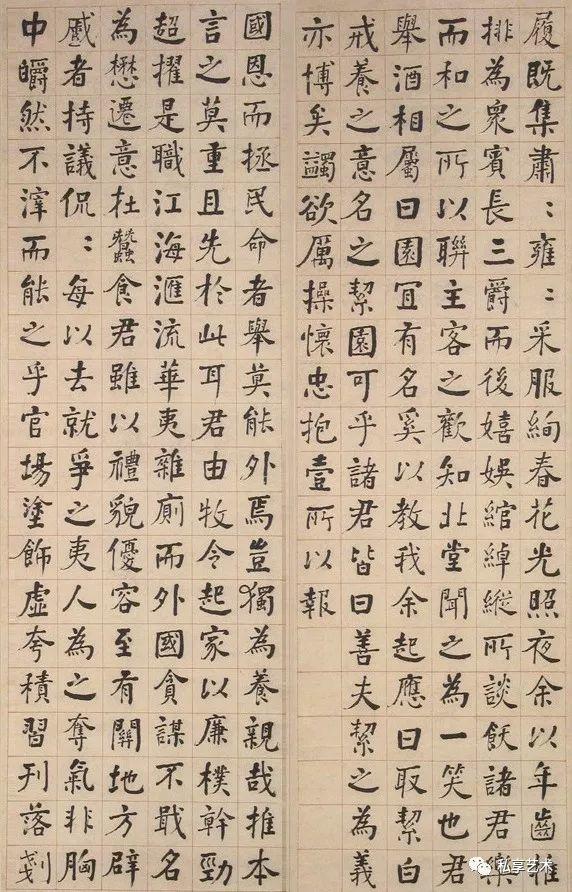 履既集肅〻雍〻采服絢春花光照夜余以年齒
排為眾賓長三爵而後嬉娛綰綽縱所談飫諸君
而和之所以聯主客之歡知北堂聞之為一笑也君
舉酒相屬曰園宜有名奚以教我余起應曰取絜白
戒養之意名之絜園可乎諸君皆曰善夫絜之為義
亦博矣蠲欲厲操懷忠抱壹所以報
國恩而拯民命者舉莫能外焉豈獨為養親哉推本
言之莫重且先於此耳君由牧令起家以廉樸幹勁
超擢是職江海滙流華夷雜廁而外國貪謀不戢名
為懋遷意在蠶食君雖以禮貌優容至有關地方辟
戚者持議侃〻每以去就爭之夷人為之奪氣非胸
中皭然不滓而能之乎官場塗飾虛夸積習刊落剗
私享艺术